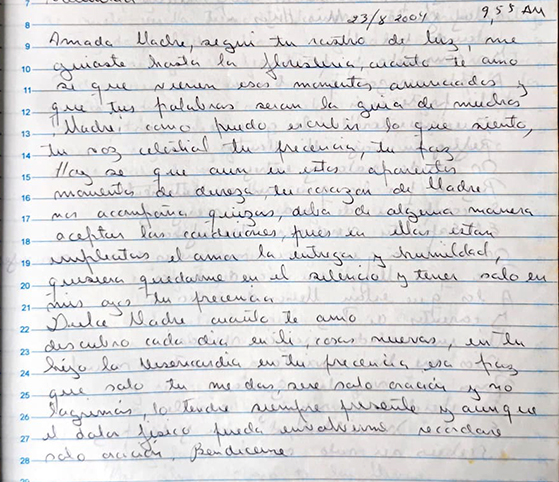 23/8 2004 9,55 AM
8 Amada Madre, segui tu rastro de luz, me
9 guiaste hasta la floristeria, cuanto te amo
10 se que vienen esos momentos anunciados y
11 que tus palabras seran la guia de muchos
12 Madre, como puedo escribir lo que siento,
13 tu voz celestial tu precencia, tu paz
14 Hoy se que aun en estos aparentes
15 momentos de dureza, tu corazon de Madre
16 nos acompaña quizas, deba de alguna manera
17 aceptar las condiciones, pues en ellas estan
18 implicitas el amor la entrega y humildad,
19 quisiera quedarme en el silencio y tener solo en
20 mis ojos tu precencia
21 Dulce Madre cuanto te amo
22 descubro cada dia en ti, cosas nuevas, en tu
23 hijo la Misericordia en tu precencia esa paz
24 que solo tu me das, sere solo oracion y no
25 lagrimas, lo tendre siempre presente y aunque
26 el dolor fisico pueda envolverme recordare
27 solo oracion. Bendiceme
28